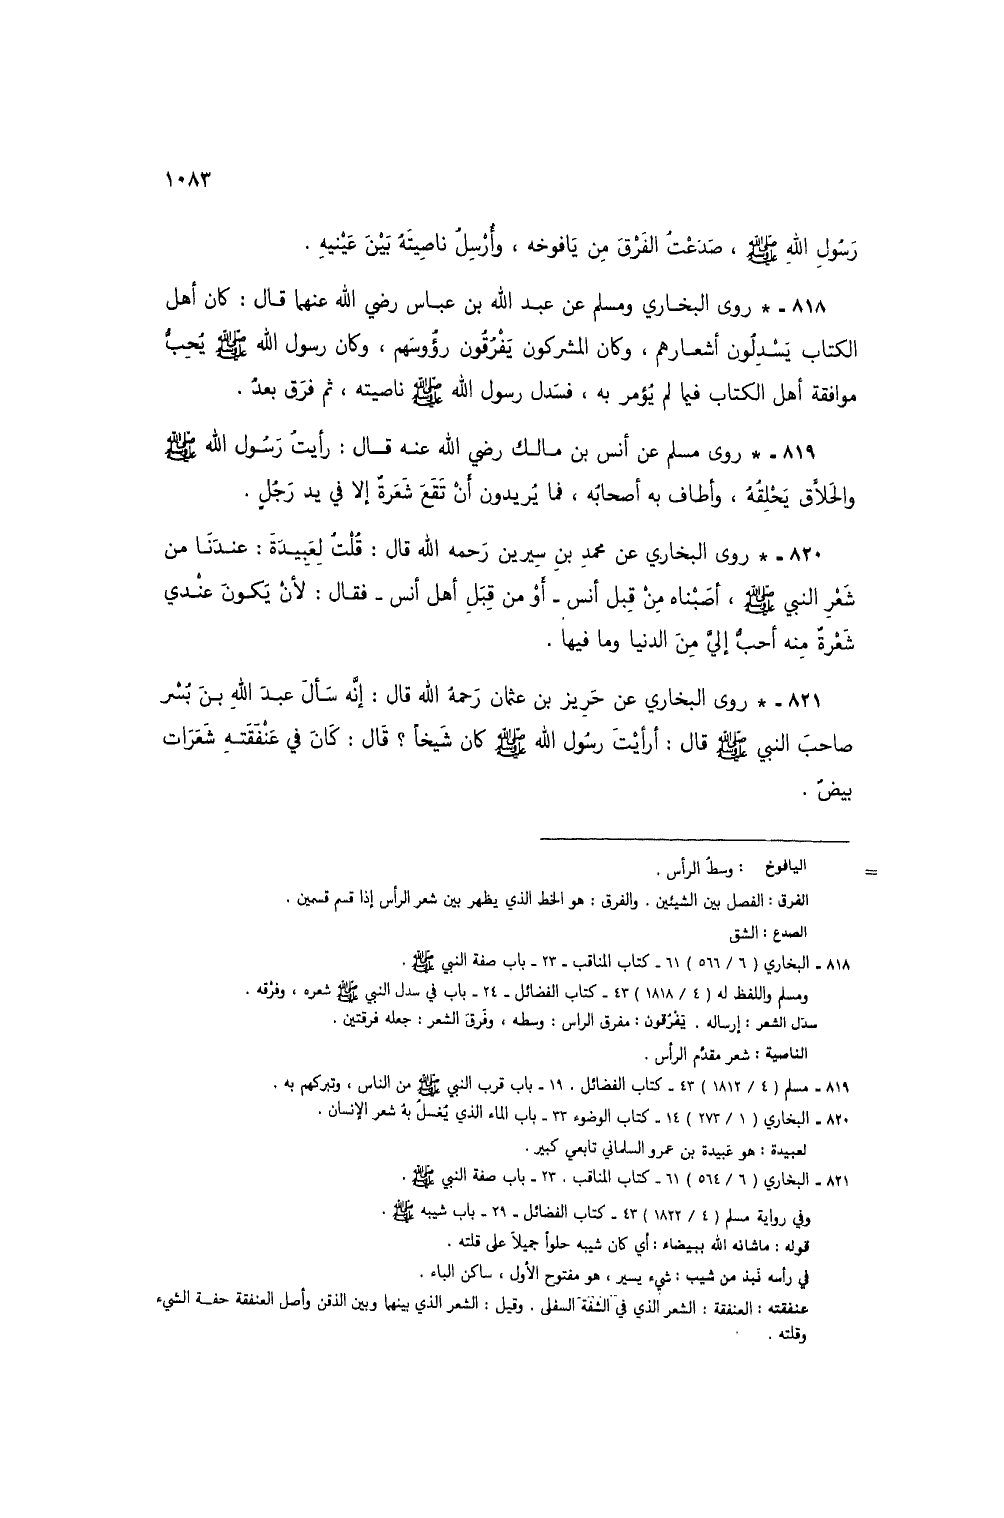 ١٠٨٣
رَسُولِ اللهِ ﷺ ، صَدَعْتُ الفَرْقَ مِن يَافوخه ، وأُرْسِلُ ناصِيتَهُ بَيْنَ عَيْنيهِ .
٨١٨ ـ * روى البخـاري ومسلم عن عبـد الله بن عبـاس رضي الله عنهما قـال : كان أهل
الكتاب يَسْـدِلُون أشعـارهم ، وكان المشركون يَفْرُقُون رؤُوسَهم ، وكان رسول الله ﷺ يُحِبُّ
موافقة أهل الكتاب فيما لم يُؤمر به ، فسَدل رسول الله ﷺ ناصيته ، ثم فرَق بعدُ .
٨١٩ ـ * روى مسلم عن أنس بن مـالـك رضي الله عنـه قـال : رأيتُ رَسُول الله ﷺ
والحَلاَّق يَحْلِقُهُ ، وأطاف به أصحابُه ، فما يُريدون أَنْ تَقَعَ شَعَرَةٌ إلا في يد رَجُلٍ .
٨٢٠ ـ * روى البخاري عن محمدِ بنِ سِيرين رَحمه الله قال : قُلْتُ لِعَبِيـدَةَ : عنـدَنَـا من
شَعْرِ النبي ﷺ ، أصَبْناه مِنْ قِبل أنس ـ أَوْ من قِبَلِ أهل أنس ـ فقـال : لأنْ يَكـونَ عنْـدي
شَعْرةٌ مِنه أحبُّ إليَّ مِنَ الدنيا وما فيها .
٨٢١ ـ * روى البخاري عن حَرِيز بن عثمان رَحمهُ الله قال : إنَّه سَـأَلَ عبـدَ اللهِ بـنَ بُسْر
صاحبَ النبي ﷺ قال : أرأيْتَ رسُول الله ﷺ كان شَيخاً ؟ قَال : كَانَ في عَنْفَقَتـهِ شَعَرَات
بيضٌ .
= اليافوخ : وسطُ الرأس .
الفرق : الفصل بين الشيئين . والفرق : هو الخط الذي يظهر بين شعر الرأس إذا قسم قسمين .
الصدع : الشق
٨١٨ ـ البخاري ( ٦ / ٥٦٦ ) ٦١ ـ كتاب المناقب ـ ٢٣ ـ باب صفة النبي ﷺ .
ومسلم واللفظ له ( ٤ / ١٨١٨ ) ٤٣ ـ كتاب الفضائل ـ ٢٤ ـ باب في سدل النبي ﷺ شعره ، وفرْقه .
سدَل الشعر : إرساله . يَفْرُقون : مفرق الراس : وسطه ، وفَرقَ الشعر : جعله فرقتين .
الناصية : شعر مقدَّم الرأس .
٨١٩ ـ مسلم ( ٤ / ١٨١٢ ) ٤٣ ـ كتاب الفضائل . ١٩ ـ باب قرب النبي ﷺ من الناس ، وتبركهم به .
٨٢٠ ـ البخاري ( ١ / ٢٧٣ ) ١٤ ـ كتاب الوضوء ٣٣ ـ باب الماء الذي يُغسلُ بهُ شعر الإنسان .
لعبيدة : هو عَبيدة بن عمرو السلماني تابعي كبير .
٨٢١ ـ البخاري ( ٦ / ٥٦٤ ) ٦١ ـ كتاب المناقب . ٢٣ ـ باب صفة النبي ﷺ .
وفي رواية مسلم ( ٤ / ١٨٢٢ ) ٤٣ ـ كتاب الفضائل ـ ٢٩ ـ باب شيبه ﷺ .
قوله : ماشانه الله ببيضاء : أي كان شيبه حلواً جميلاً على قلته .
في رأسه نَبذ من شيب : شيء يسير ، هو مفتوح الأول ، ساكن الباء .
عنفقته : العنفقة : الشعر الذي في الشفة السفلى . وقيل : الشعر الذي بينهما وبين الذقن وأصل العنفقة خفـة الشيء
وقلته .